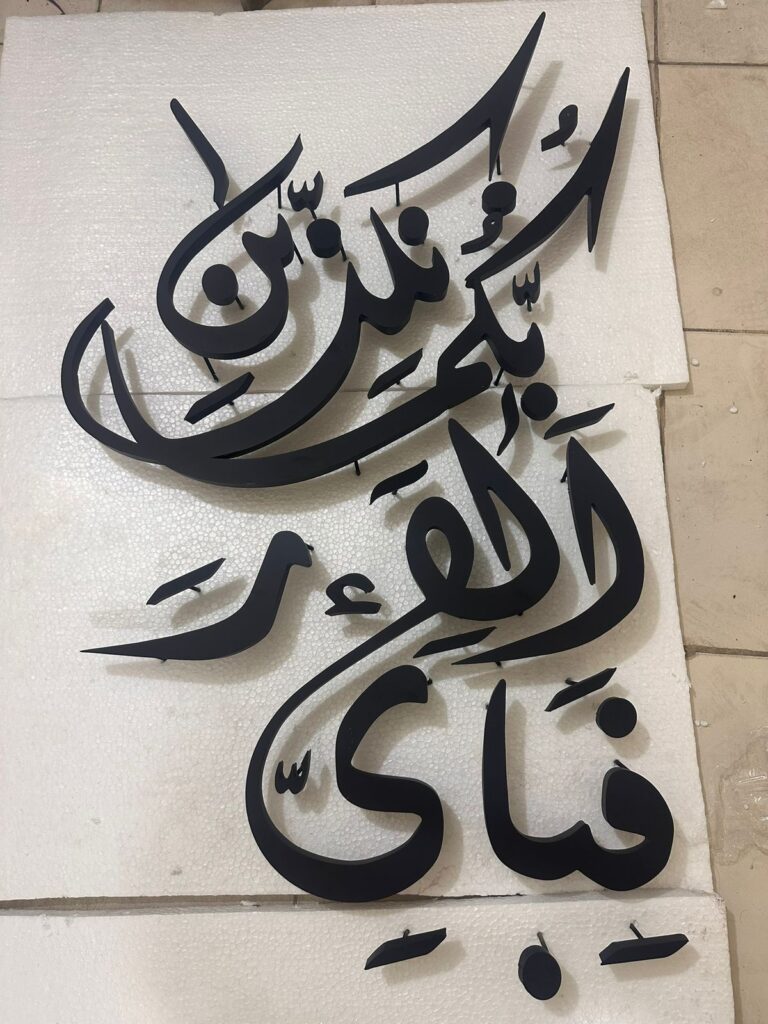 فَبِأَيِّ
آلَاءِ رَبِّكُمَا
تُكَذِّبَانِ